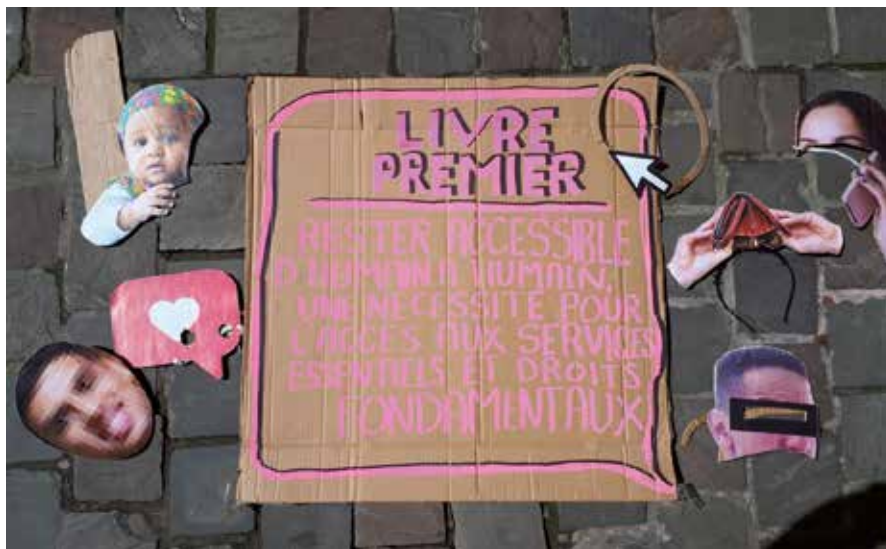 LIVRE
PREMIER
RESTER ACCESSIBLE
D'HUMAIN A HUMAIN,
UNE NECESSITE POUR
L'ACCES AUX SERVICES
ESSENTIELS ET DROITS
FONDAMENTAUX